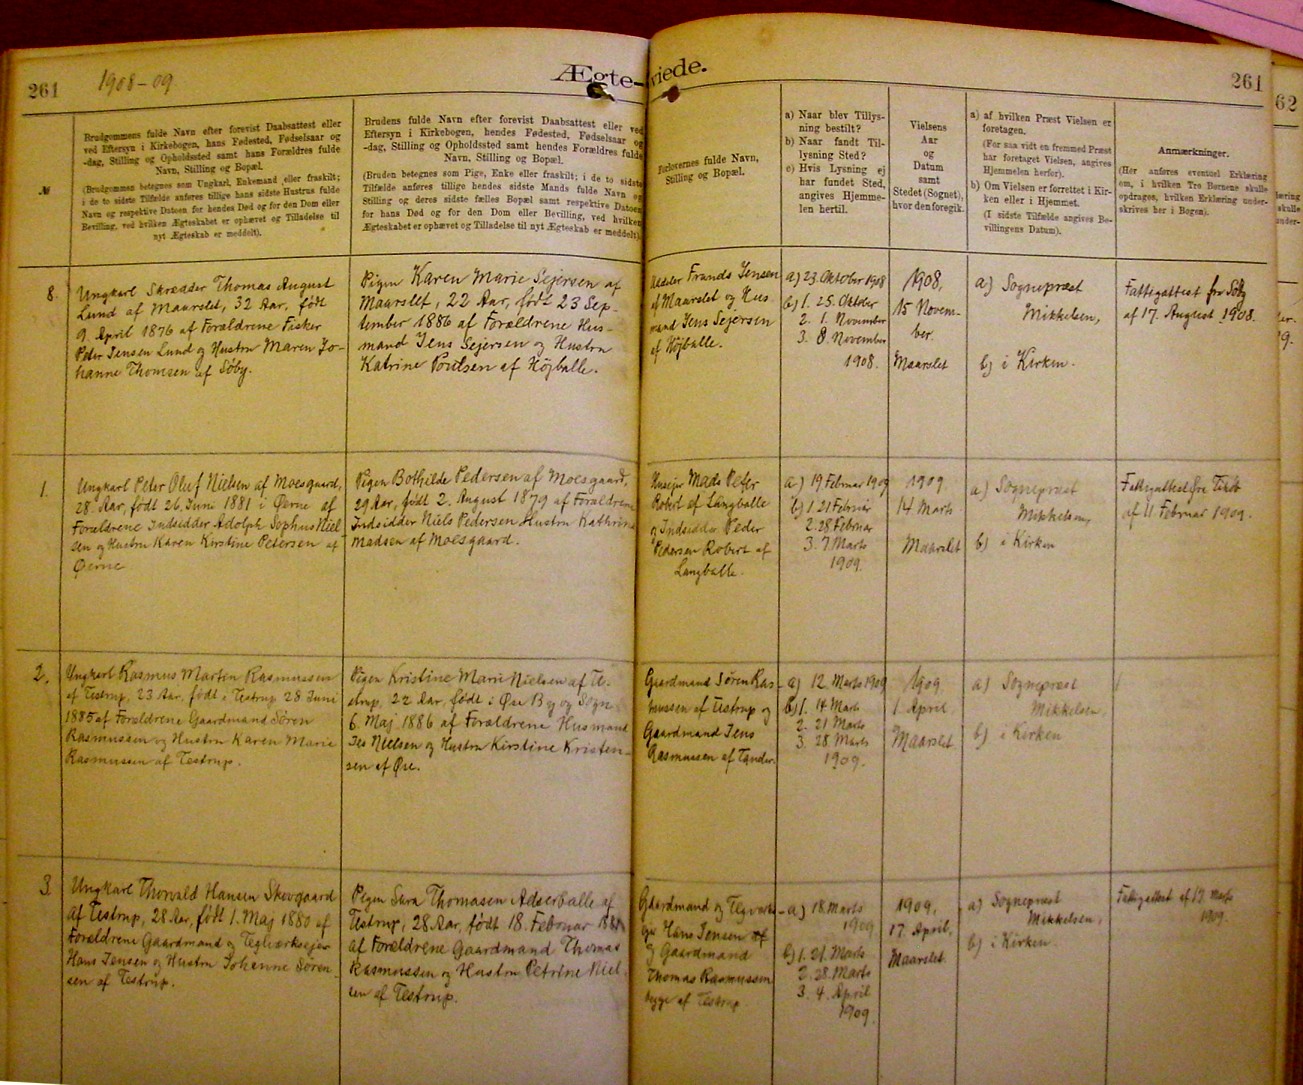 261
1908-09
Ægte-
viede.
261
62
№
Brudgommens fulde Navn efter forevist Daabsattest eller
ved Eftersyn i Kirkebogen, hans Fødested, Fødselsaar og
-dag, Stilling og Opholdssted samt hans Forældres fulde
Navn, Stilling og Bopæl.
(Brudgommen betegnes som Ungkarl, Enkemand eller fraskilt;
i de to sidste Tilfælde anføres tillige hans sidste Hustrus fulde
Navn og respektive Datoen for hendes Død og for den Dom eller
Bevilling, ved hvilken Ægteskabet er ophævet og Tilladelse til
nyt Ægteskab er meddelt).
Brudens fulde Navn efter forevist Daabsattest eller ved
Eftersyn i Kirkebogen, hendes Fødested, Fødselsaar og
-dag, Stilling og Opholdssted samt hendes Forældres fulde
Navn, Stilling og Bopæl.
(Bruden betegnes som Pige, Enke eller fraskilt; i de to sidste
Tilfælde anføres tillige hendes sidste Mands fulde Navn og
Stilling og deres sidste fælles Bopæl samt respektive Datoen
for hans Død og for den Dom eller Bevilling, ved hvilken
Ægteskabet er ophævet og Tilladelse til nyt Ægteskab er meddelt).
Forlovernes fulde Navn,
Stilling og Bopæl.
a) Naar blev Tillys-
ning bestilt?
b) Naar fandt Til-
lysning Sted?
c) Hvis Lysning ej
har fundet Sted,
angives Hjemme-
len hertil.
Vielsens
Aar
og
Datum
samt
Stedet (Sognet),
hvor den foregik.
a) af hvilken Præst Vielsen er
foretagen.
(For saa vidt en fremmed Præst
har foretaget Vielsen, angives
Hjemmelen herfor).
b) Om Vielsen er forrettet i Kir-
ken eller i Hjemmet.
(I sidste Tilfælde angives Be-
villingens Datum).
Anmærkninger.
(Her anføres eventuel Erklæring
om, i hvilken Tro Børnene skulle
opdrages, hvilken Erklæring under-
skrives her i Bogen).
8.
Ungkarl Skrædder Thomas August
Lund af Maarslet, 32 Aar, født
9. April 1876 af Forældrene Fisker
Peter Jensen Lund og Hustru Maren Jo-
hanne Thomsen af Søby.
Pigen Karen Marie Sejersen af
Maarslet, 22 Aar, født 23 Sep-
tember 1886 af Forældrene Hus-
mand Jens Sejersen og Hustru
Katrine Poulsen af Højballe.
Frands Jensen
af Maarslet og Hus-
mand Jens Sejersen
af Højballe.
a) 23. Oktober 1908
b) 1. 25. Oktober
2. 1. November
3. 8. November
1908.
1908,
15 Novem-
ber.
Maarslet
a) Sognepræst
Mikkelsen,
b) i Kirken.
Fattigattest fra Søby
af 17. August 1908.
1.
Ungkarl Peter Oluf Nielsen af Moesgaard,
28 Aar, født 26. Juni 1881 i Ørne af
Forældrene Indsidder Adolph Sophus Niel-
sen og Hustru Karen Kirstine Petersen af
Pigen Bothilde Pedersen af Moesgaard,
29 Aar, født 2. August 1879 af Forældrene
Indsidder Niels Pedersen Hustru Kathrine
Madsen af Moesgaard.
Husejer Mads Peter
Robert af Langballe
og Indsidder Peder
Pedersen Robert af
Langballe.
a) 19 Februar 1909
b) 1. 21 Februar
2. 28 Februar
3. 7. Marts
1909.
1909
14 Marts
Maarslet
a) Sognepræst
Mikkelsen,
b) i Kirken
Fattigattest
af 11 Februar 1909.
2.
Ungkarl Rasmus Martin Rasmussen
af Testrup, 23 Aar, født i Testrup 28 Juni
1885 af Forældrene Gaardmand Søren
Rasmussen og Hustru Karen Marie
Rasmussen af Testrup.
Pigen Kristine Marie Nielsen af Te-
strup, 22 Aar, født i Øse By og Sogn
6 Maj 1886 af Forældrene Husmand
Jes Nielsen og Hustru Kirstine Kristen-
sen af Øse.
Gaardmand Søren Ras-
mussen af Testrup og
Gaardmand Jens
Rasmussen af Tander.
a) 12. Marts 1909
b) 1. 14 Marts
2. 21 Marts
3. 28 Marts
1909.
1909
1 April.
Maarslet
a) Sognepræst
Mikkelsen,
b) i Kirken
3.
Ungkarl Thorvald Hansen Skovgaard
af Testrup, 28 Aar, født 1. Maj 1880 af
Forældrene Gaardmand og Teglværksejer
Hans Jensen og Hustru Johanne Søren-
sen af Testrup.
Pigen Sara Thomasen Adserballe af
Testrup, 28 Aar, født 18. Februar
af Forældrene Gaardmand Thomas
Rasmussen og Hustru Petrine Niel-
sen af Testrup.
Gaardmand og Teglværks-
ejer Hans Jensen af
og Gaardmand
Thomas Rasmussen
af Testrup
a) 18. Marts
1909
b) 1. 21. Marts
2. 28. Marts
3. 4. April
1909.
1909,
17. April,
Maarslet.
a) Sognepræst
Mikkelsen,
b) i Kirken.
Fattigattest af 17 Marts
1909.